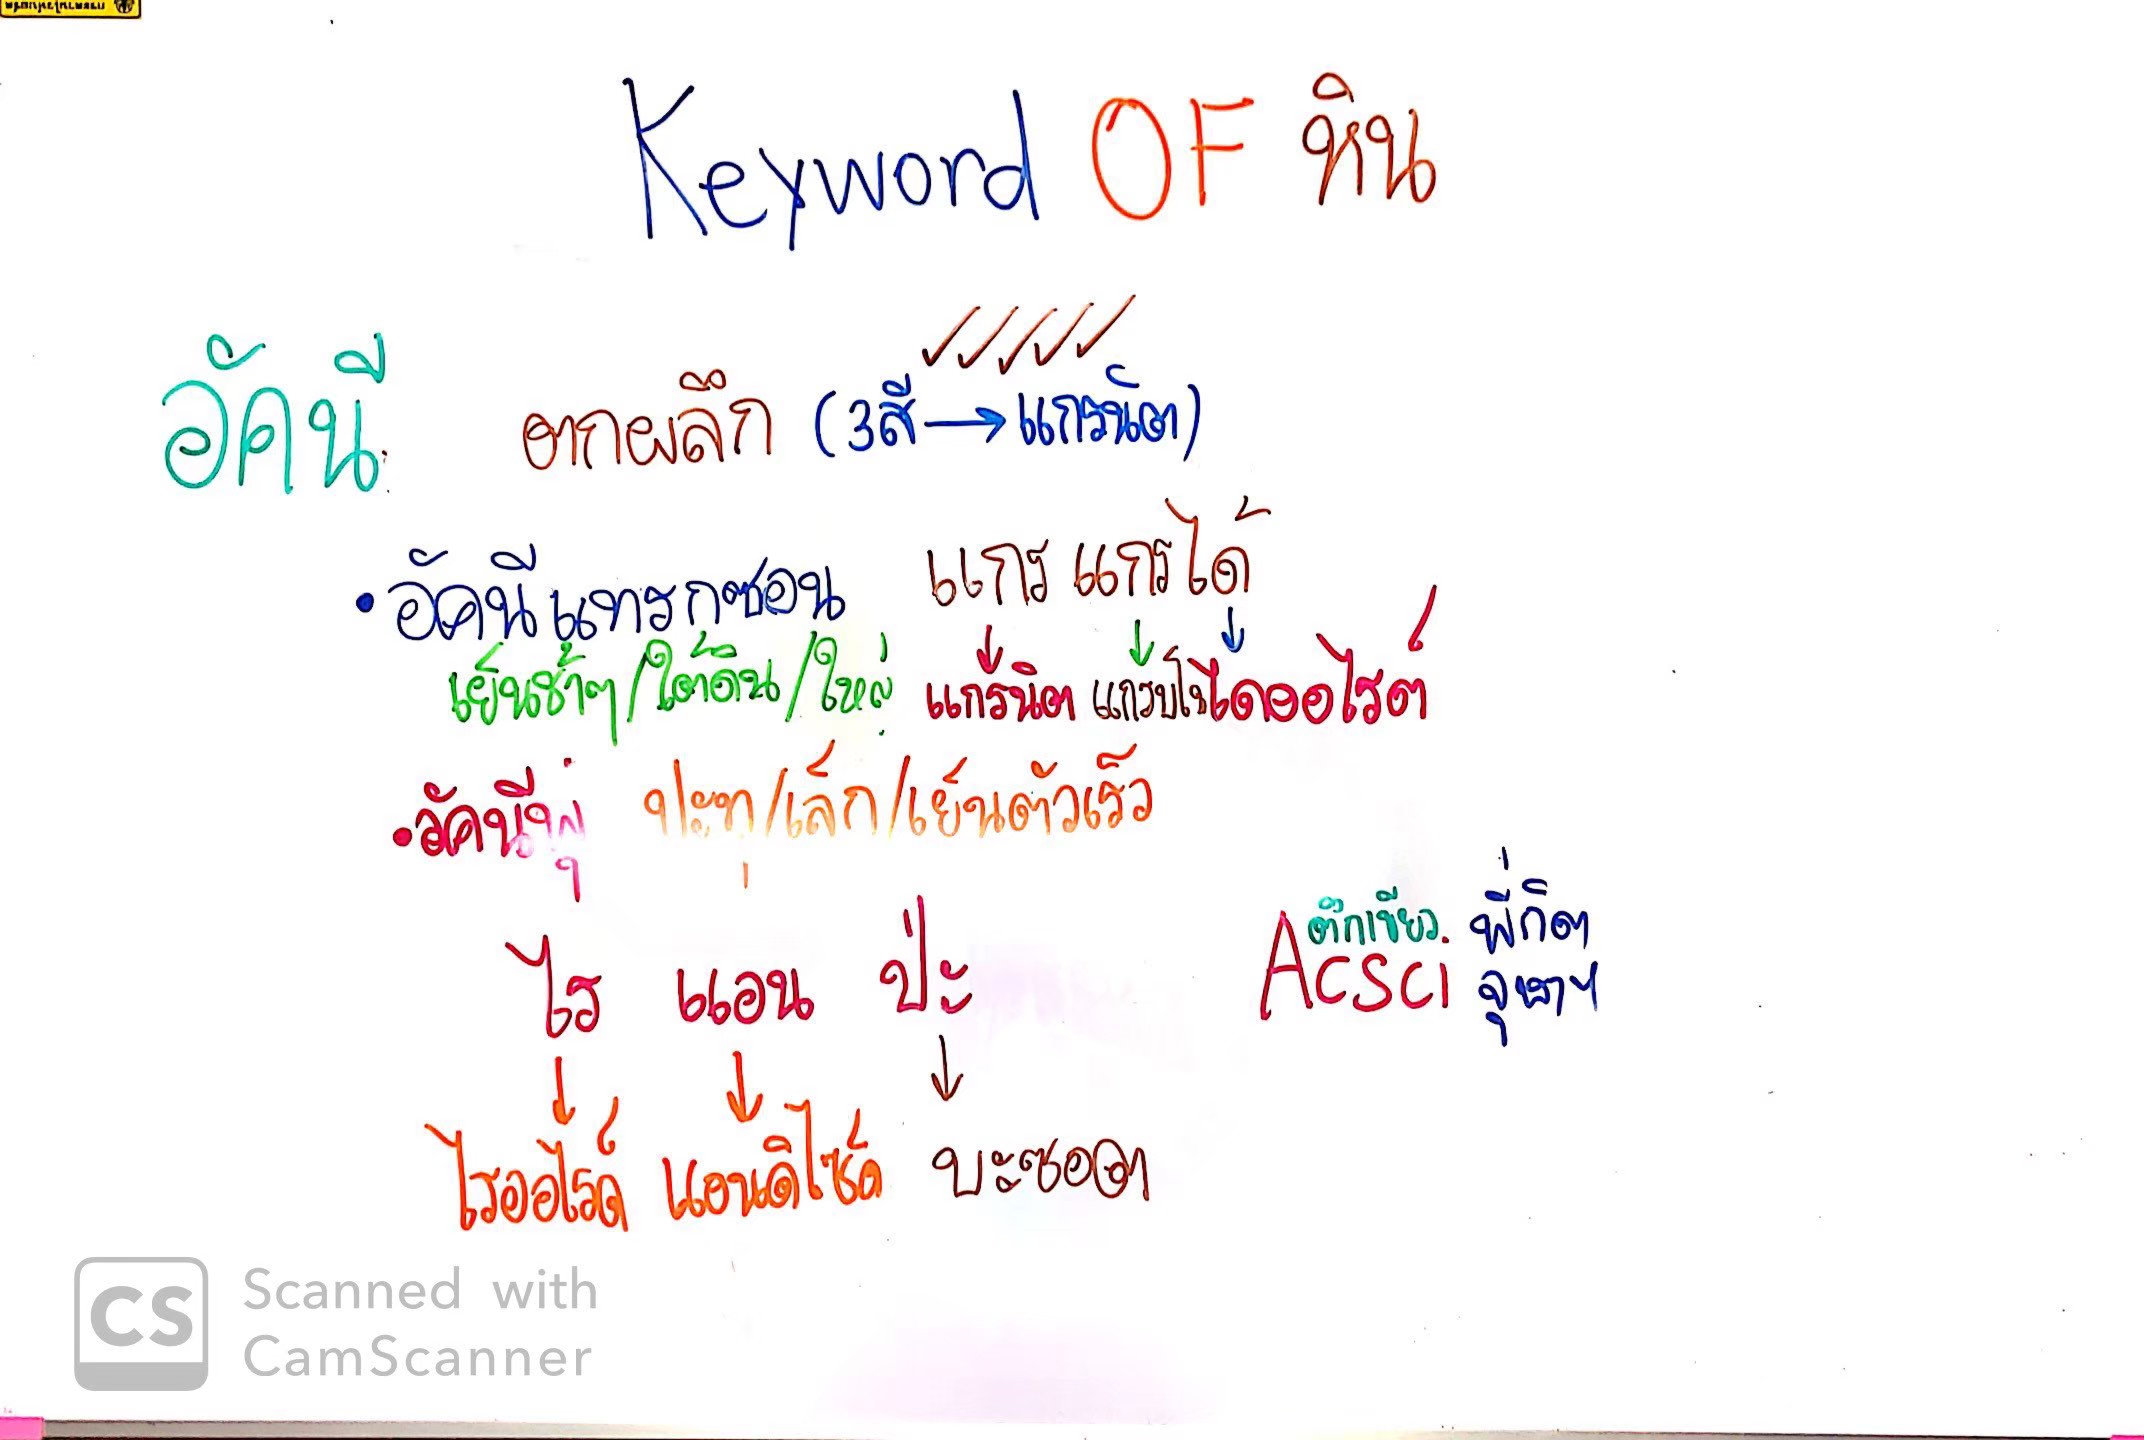 Keyword OF หิน
อัคนี ตกผลึก (3สี → แกรนิต)
• อัคนีแทรกซอน แกร แกร ได้
เย็นช้าๆ/ใต้ดิน/ใหญ่ แกรนิต แกรบโบ ไดออไรต์
• อัคนีพุ ปะทุ/เล็ก/เย็นตัวเร็ว
ไร แอน ป่ะ
ตึกเขียว. พี่กิต
ACSCI จุฬาฯ
ไรออไรต์ แอนดิไซต์ บะซอลต
CS Scanned with
CamScanner